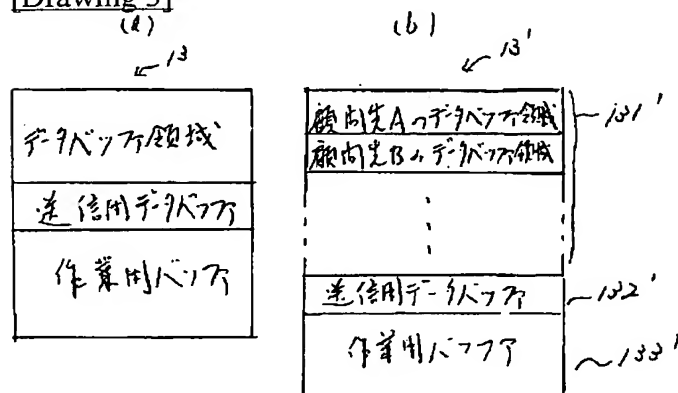 [Drawing 3]
(a)
13
データバッファ領域
送信用データバッファ
作業用バッファ
(b)
13'
顧問先Aのデータバッファ領域
顧問先Bのデータバッファ領域
131'
送信用データバッファ
132'
作業用バッファ
133'